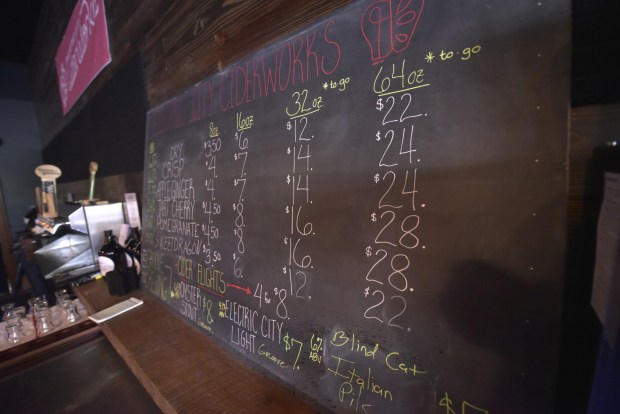 CITY CIDERWORKS
8oz 16oz 32oz *to·go 64oz *to·go
DRY $3.50 $6. $12. $22.
CRISP 4. $7. $14. $24.
APPLE GINGER 4. $7. $14. $24.
CHERRY $4.50 $8. $16. $28.
POMEGRANATE $4.50 $8. $16. $28.
SWEET DRAGON $3.50 6. $12. $22.
CIDER FLIGHTS → 4 for $8.
MONSTER $8
ELECTRIC CITY
LIGHT $7. 6% ABV
Blind Cat
Italian
Pils